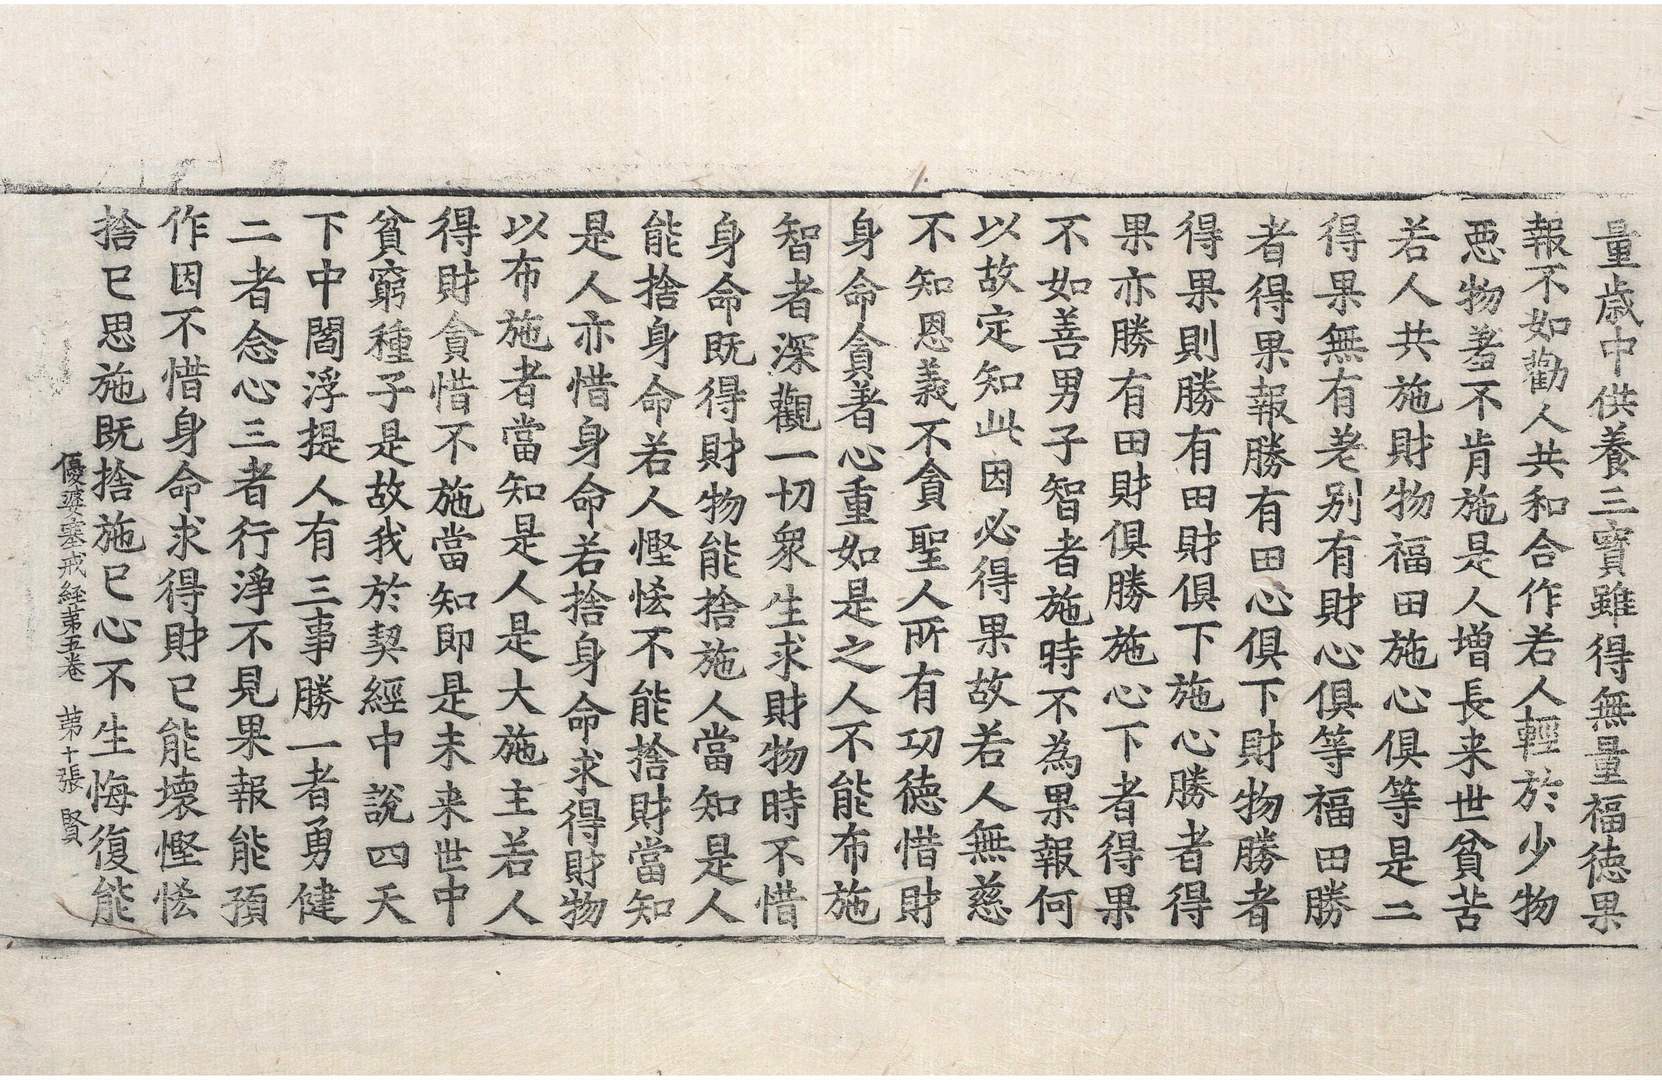 量歲中供養三寶雖得無量福徳果
報不如勸人共和合作若人輕於少物
惡物羞不肯施是人增長来世貧苦
若人共施財物福田施心俱等是二
得果無有差別有財心俱等福田勝
者得果報勝有田心俱下財物勝者
得果則勝有田財俱下施心勝者得
果亦勝有田財俱勝施心下者得果
不如善男子智者施時不為果報何
以故定知此因必得果故若人無慈
不知恩義不貪聖人所有功徳惜財
身命貪著心重如是之人不能布施
智者深觀一切衆生求財物時不惜
身命既得財物能捨施人當知是人
能捨身命若人慳悋不能捨財當知
是人亦惜身命若捨身命求得財物
以布施者當知是人是大施主若人
得財貪惜不施當知即是未来世中
貧窮種子是故我於契經中說四天
下中閻浮提人有三事勝一者勇健
二者念心三者行淨不見果報能預
作因不惜身命求得財已能壞慳悋
捨已思施既捨施已心不生悔復能
優婆塞戒経苐五卷 苐十張 賢